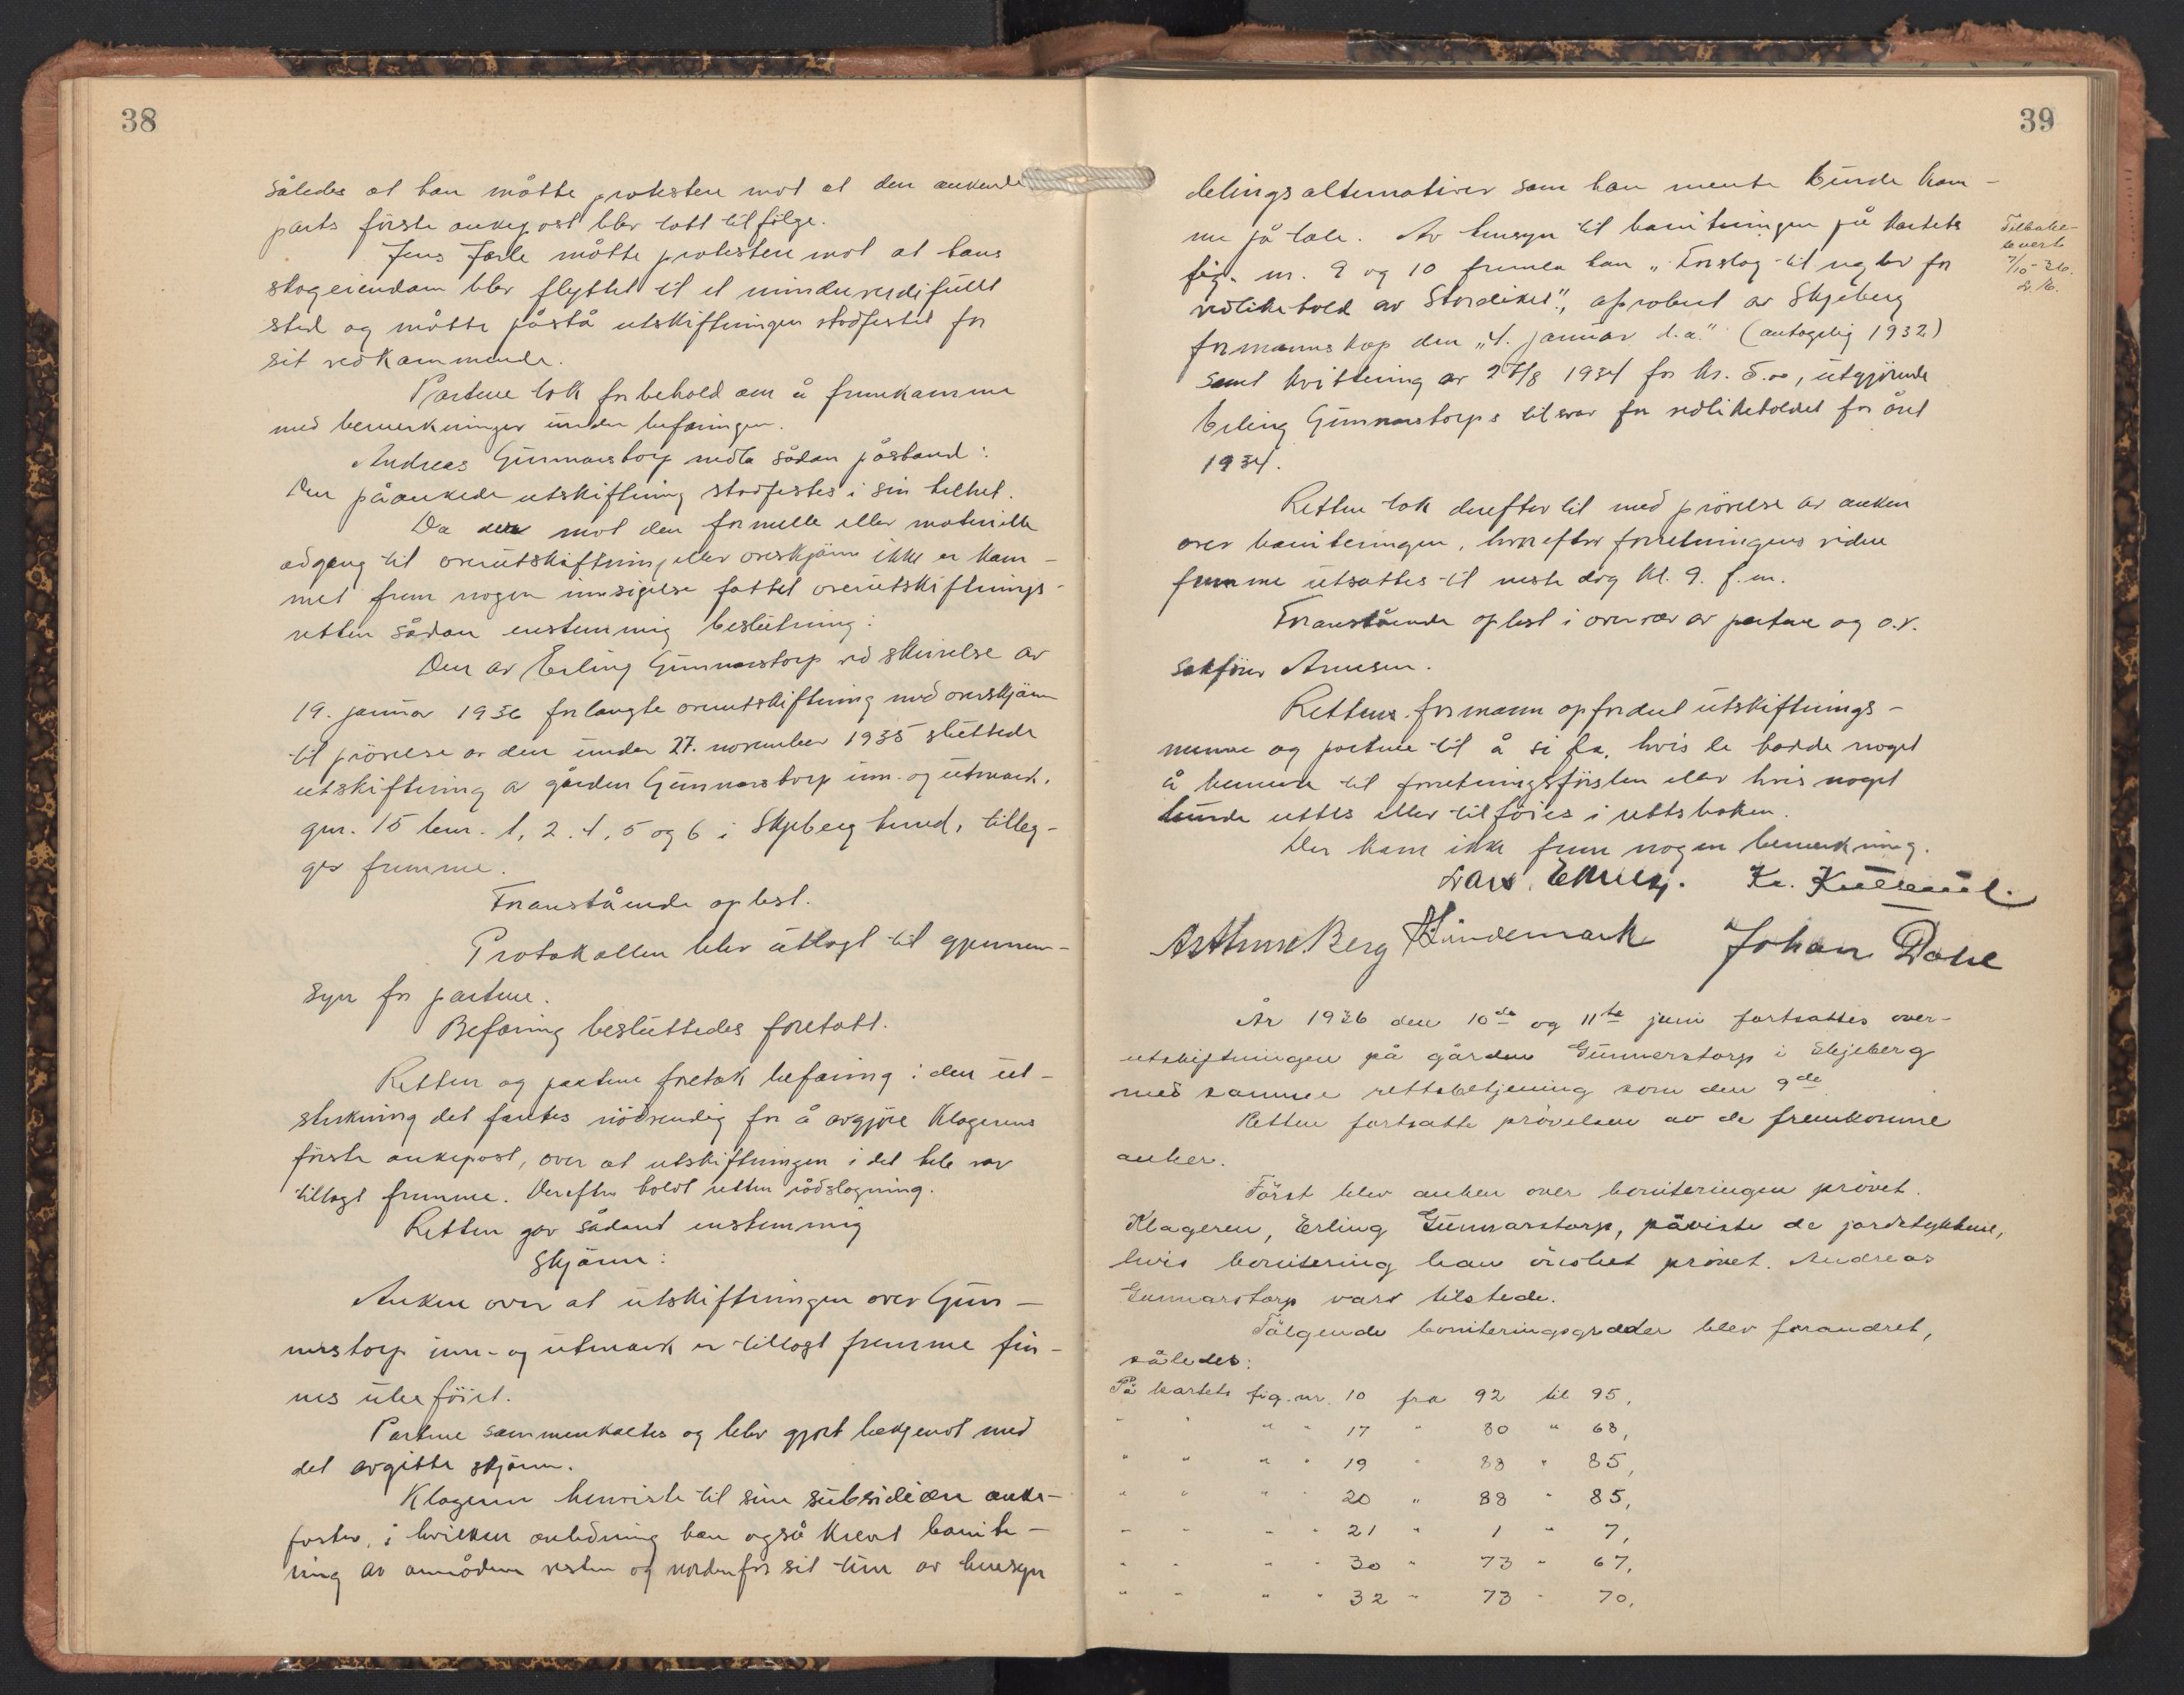 38
således at han måtte protestere mot at den ankende
parts første ankepost blev tatt tilfølge.
Jens Jarle måtte protestere mot at hans
skogeiendom blev flyttet til et mindreverdifullt
sted og måtte påstå utskiftningen stadfestet for
sit vedkommende.
Partene tok forbehold om å fremkomme
med bemerkninger under befaringen.
Andreas Gunnarstorp nedla sådan påstand:
Den påankede utskiftning stadfestes i sin helhet.
Da der mot den formelle eller materielle
adgang til overutskiftning eller overskjønn ikke er kom-
met frem nogen innsigelse fattet overutskiftnings-
retten sådan enstemmig beslutning:
Den av Erling Gunnarstorp ved skrivelse av
19. januar 1936 forlangte overutskiftning med overskjønn
til prøvelse av den under 27. november 1935 sluttede
utskiftning av gården Gunnarstorp inn- og utmark,
gnr. 15 bnr. 1, 2, 4, 5 og 6 i Skjeberg herred, tilleg-
ges fremme.
Foranstående oplest.
Protokollen blev utlagt til gjennem-
syn for partene.
Befaring besluttedes foretatt.
Retten og partene foretok befaring i den ut-
strekning det fantes nødvendig for å avgjøre klagerens
første ankepost, over at utskiftningen i det hele var
tillagt fremme. Derefter holdt retten rådslagning.
Retten gav sådant enstemmig
Skjønn:
Anken over at utskiftningen over Gun-
narstorp inn- og utmark er tillagt fremme fin-
nes ubeføiet.
Partene sammenkaltes og blev gjort bekjent med
det avgitte skjønn.
Klageren henviste til sine subsidiære anke-
poster, i hvilken anledning han også krevet bonite-
ring av områdene vesten og nordenfor sit tun av hensyn
39
delingsalternativer som han mente kunde kom-
me på tale. Av hensyn til boniteringen på kartets
fig. nr. 9 og 10 fremla han "Forslag til regler for
vedlikehold av Stordiket", aprobert av Skjeberg
formannskap den "4. januar d.a." (antagelig 1932)
samt kvittering av 27/8 1934 for kr. 5.00, utgjørende
Erling Gunnarstorps tilsvar for vedlikeholdet for året
1934.
Tilbake-
levert
7/10-36.
Retten tok derefter til med prøvelse av anken
over boniteringen, hvorefter forretningens videre
fremme utsattes til neste dag kl. 9. f.m.
Foranstående oplest i overvær av partene og o.r.
sakfører Arnesen.
Rettens formann opfordret utskiftnings-
mennene og partene til å si fra, hvis de hadde noget
å bemerke til forretningsførselen eller hvis noget
burde rettes eller tilføies i rettsboken.
Der kom ikke frem nogen bemerkning.
Arthur Berg Johan Dahl
År 1936 den 10de og 11te juni fortsattes over-
utskiftningen på gården Gunnerstorp i Skjeberg
med samme rettsbetjening som den 9de
Retten fortsatte prøvelsen av de fremkomne
anker.
Først blev anken over boniteringen prøvet.
Klageren, Erling Gunnarstorp, påviste de jordstykkene,
hvis bonitering han ønsket prøvet. Andreas
Gunnarstorp vars tilstede.
Følgende boniteringsgrader blev forandret,
således:
På kartets fig. nr. 10 fra 92 til 95,
" " " " 17 " 80 " 68,
" " " " 19 " 88 " 85,
" " " " 20 " 88 " 85,
" " " " 21 " 1 " 7,
" " " " 30 " 73 " 67,
" " " " 32 " 73 " 70.